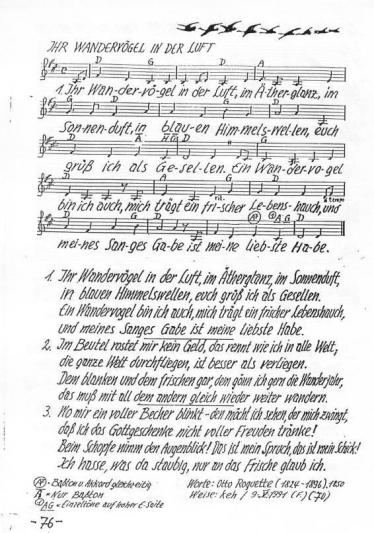 IHR WANDERVÖGEL IN DER LUFT
D G D A
1. Ihr Wan-der-vö-gel in der Luft, im Ä-ther-glanz, im
G D G D
Son-nen-duft, in blau-en Him-mels-wel-len, euch
A AG D G
grüß ich als Ge-sel-len. Ein Wan-der-vo-gel
D A D rit. a tempo
bin ich auch, mich trägt ein fri-scher Le-bens-hauch, und
G D A AG D
mei-nes San-ges Ga-be ist mei-ne lieb-ste Ha-be.
1. Ihr Wandervögel in der Luft, im Ätherglanz, im Sonnenduft,
in blauen Himmelswellen, euch grüß ich als Gesellen.
Ein Wandervogel bin ich auch, mich trägt ein fricher Lebenshauch,
und meines Sanges Gabe ist meine liebste Habe.
2. Im Beutel rostet mir kein Geld, das rennt wie ich in alle Welt,
die ganze Welt durchfliegen, ist besser als verliegen.
Dem blanken und dem frischen gar, den gönn ich gern die Wanderjahr,
das muß mit all dem andern gleich wieder weiter wandern.
3. Wo mir ein voller Becher blinkt - den möcht ich sehen, der mich zwingt,
daß ich das Gottgeschenke nicht voller Freuden tränke!
Beim Schopfe nimm den Augenblick! Das ist mein Spruch, das ist mein Schick!
Ich hasse, was da staubig, nur an das Frische glaub ich.
A = Baßton u. Akkord gleichzeitig
A = Nur Baßton
AG = Einzeltöne auf hoher E-Saite
Worte: Otto Roquette (1824-1896), 1850
Weise: keh / 9.X.1991 (F.) (70)
-76-